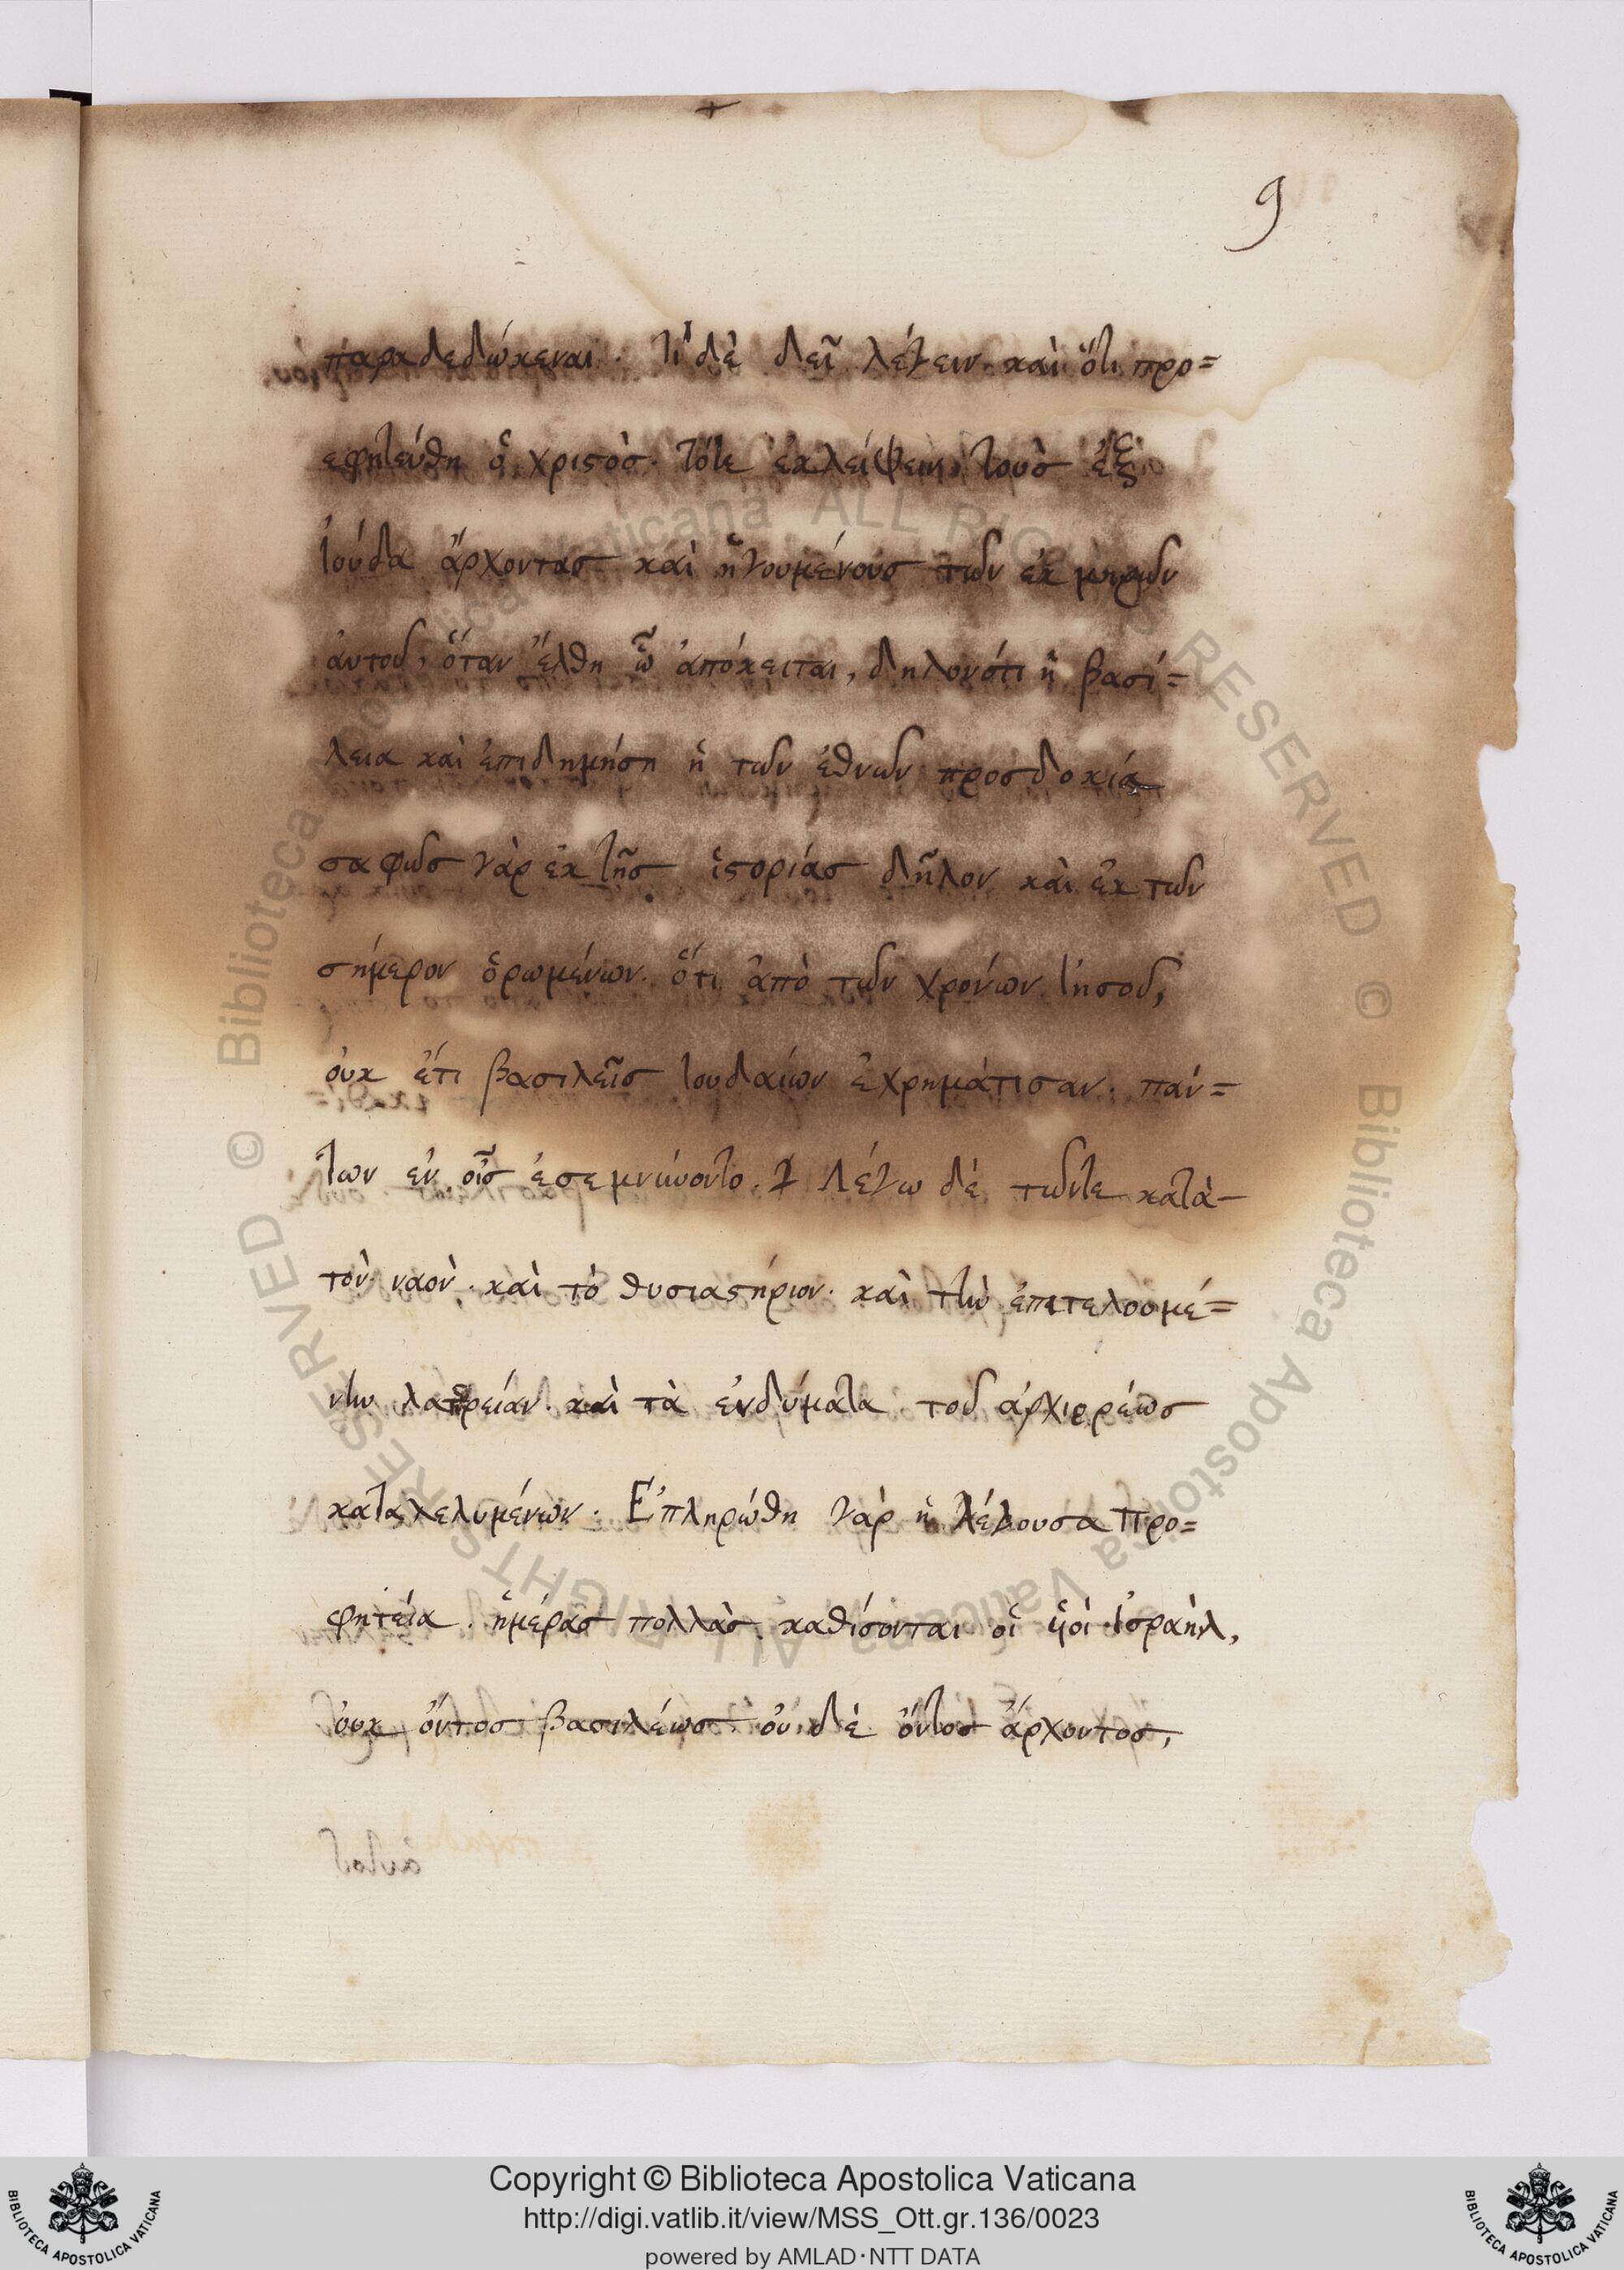 9
παραδεδώκεναι. τί δὲ δεῖ λέγειν. καὶ ὅτι προ=
εφητεύθη ὁ χριστὸς. τότε ἐκλείψειν τοὺς ἐξ
ἰούδα ἄρχοντας καὶ ἡγουμένους τῶν ἐκ μηρῶν
ἀυτοῦ, ὅταν ἔλθη ὧ ἀπόκειται, δηλονότι ἡ βασί=
λεια καὶ ἐπιδημήση ἡ τῶν ἐθνῶν προσδοκία
σαφῶς γὰρ ἐκ τῆς ἱστορίας δῆλον καὶ ἐκ τῶν
σήμερον ὁρωμένων. ὅτι ἀπὸ τῶν χρονίων ἰησοῦ,
ὀυκ ἔτι βασιλεῖς ἰουδαίων ἐχρημάτισαν. πάν=
των ἐν οἷς ἐσεμνύνοντο. λέγω δὲ τῶντε κατὰ
τὸν ναὸν. καὶ τὸ θυσιαστήριον. καὶ τὴν ἐπιτελουμέ=
νην λατρείαν. καὶ τὰ ἐνδύματα τοῦ ἀρχιερέως
καταλελυμένων. Ἐπληρώθη γὰρ ἡ λέγουσα προ=
φητεία. ἡμέρας πολλὰς καθίσονται οἱ ὑιοὶ ἰσραὴλ,
ὀυκ ὄντος βασιλέως ὀυδὲ ὄντος ἄρχοντος,
Copyright © Biblioteca Apostolica Vaticana
http://digi.vatlib.it/view/MSS_Ott.gr.136/0023
powered by AMLAD·NTT DATA
BIBLIOTECA APOSTOLICA VATICANA
BIBLIOTECA APOSTOLICA VATICANA
© Biblioteca Apostolica Vaticana ALL RIGHTS RESERVED © Biblioteca Apostolica Vaticana ALL RIGHTS RESERVED